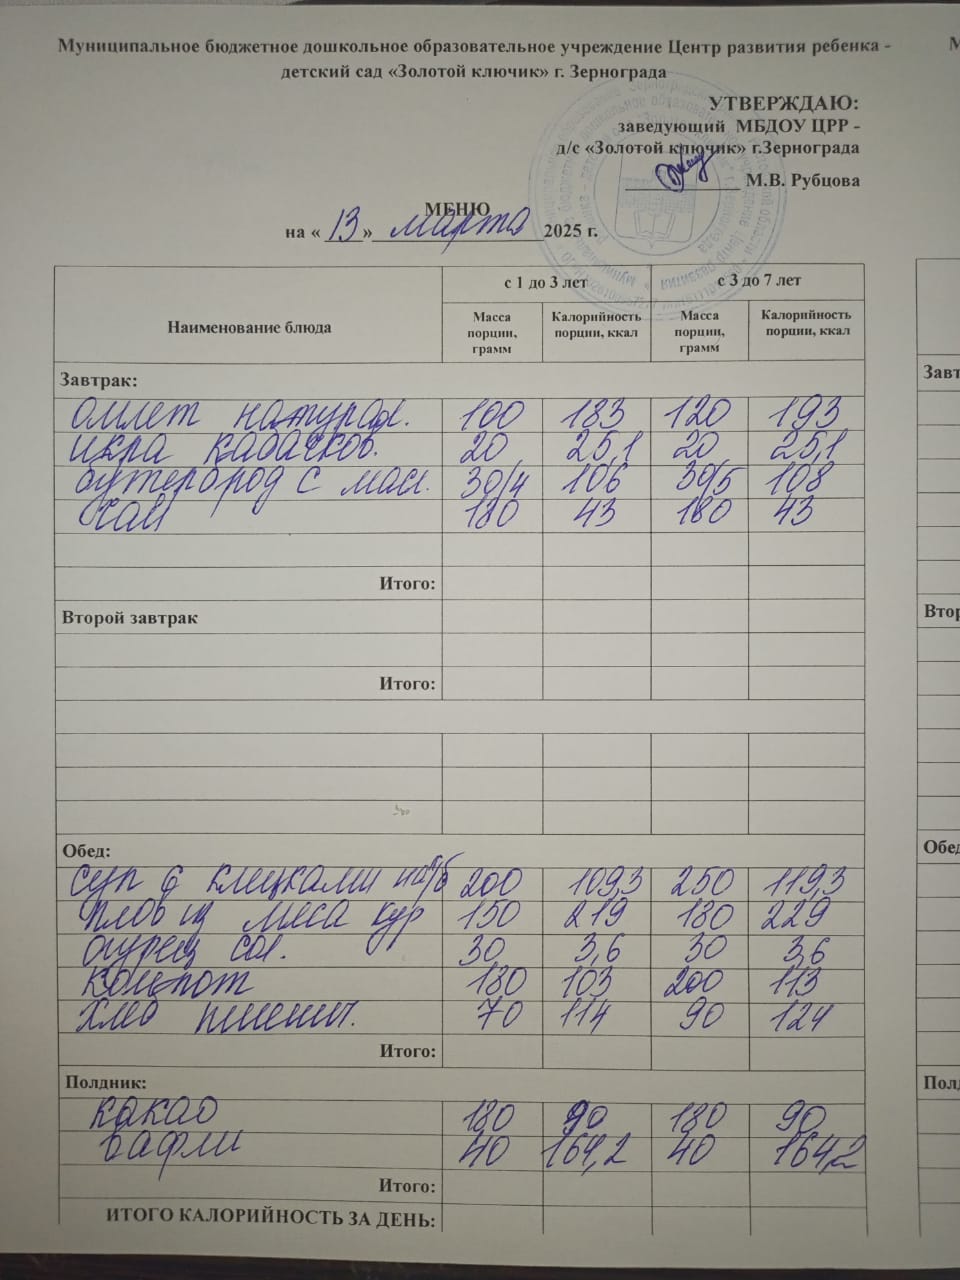 Муниципальное бюджетное дошкольное образовательное учреждение Центр развития ребенка -
детский сад «Золотой ключик» г. Зернограда
УТВЕРЖДАЮ:
заведующий МБДОУ ЦРР -
д/с «Золотой ключик» г.Зернограда
М.В. Рубцова
МЕНЮ
на « 13 » марта 2025 г.
Наименование блюда с 1 до 3 лет с 3 до 7 лет
Масса порции, грамм Калорийность порции, ккал Масса порции, грамм Калорийность порции, ккал
Завтрак:
омлет натурал. 100 183 120 193
икра кабачков. 20 25,1 20 25,1
бутерброд с масл. 30/4 106 30/5 108
чай 180 43 180 43
Итого:
Второй завтрак
Итого:
Обед:
суп с клецками 200 109,3 250 119,3
плов из мяса кур 150 219 180 229
огурец сол. 30 3,6 30 3,6
компот 180 103 200 113
хлеб пшенич. 70 114 90 124
Итого:
Полдник:
какао 180 90 180 90
вафли 40 164,2 40 164,2
Итого:
ИТОГО КАЛОРИЙНОСТЬ ЗА ДЕНЬ:
Завт
Втор
Обед
Полд